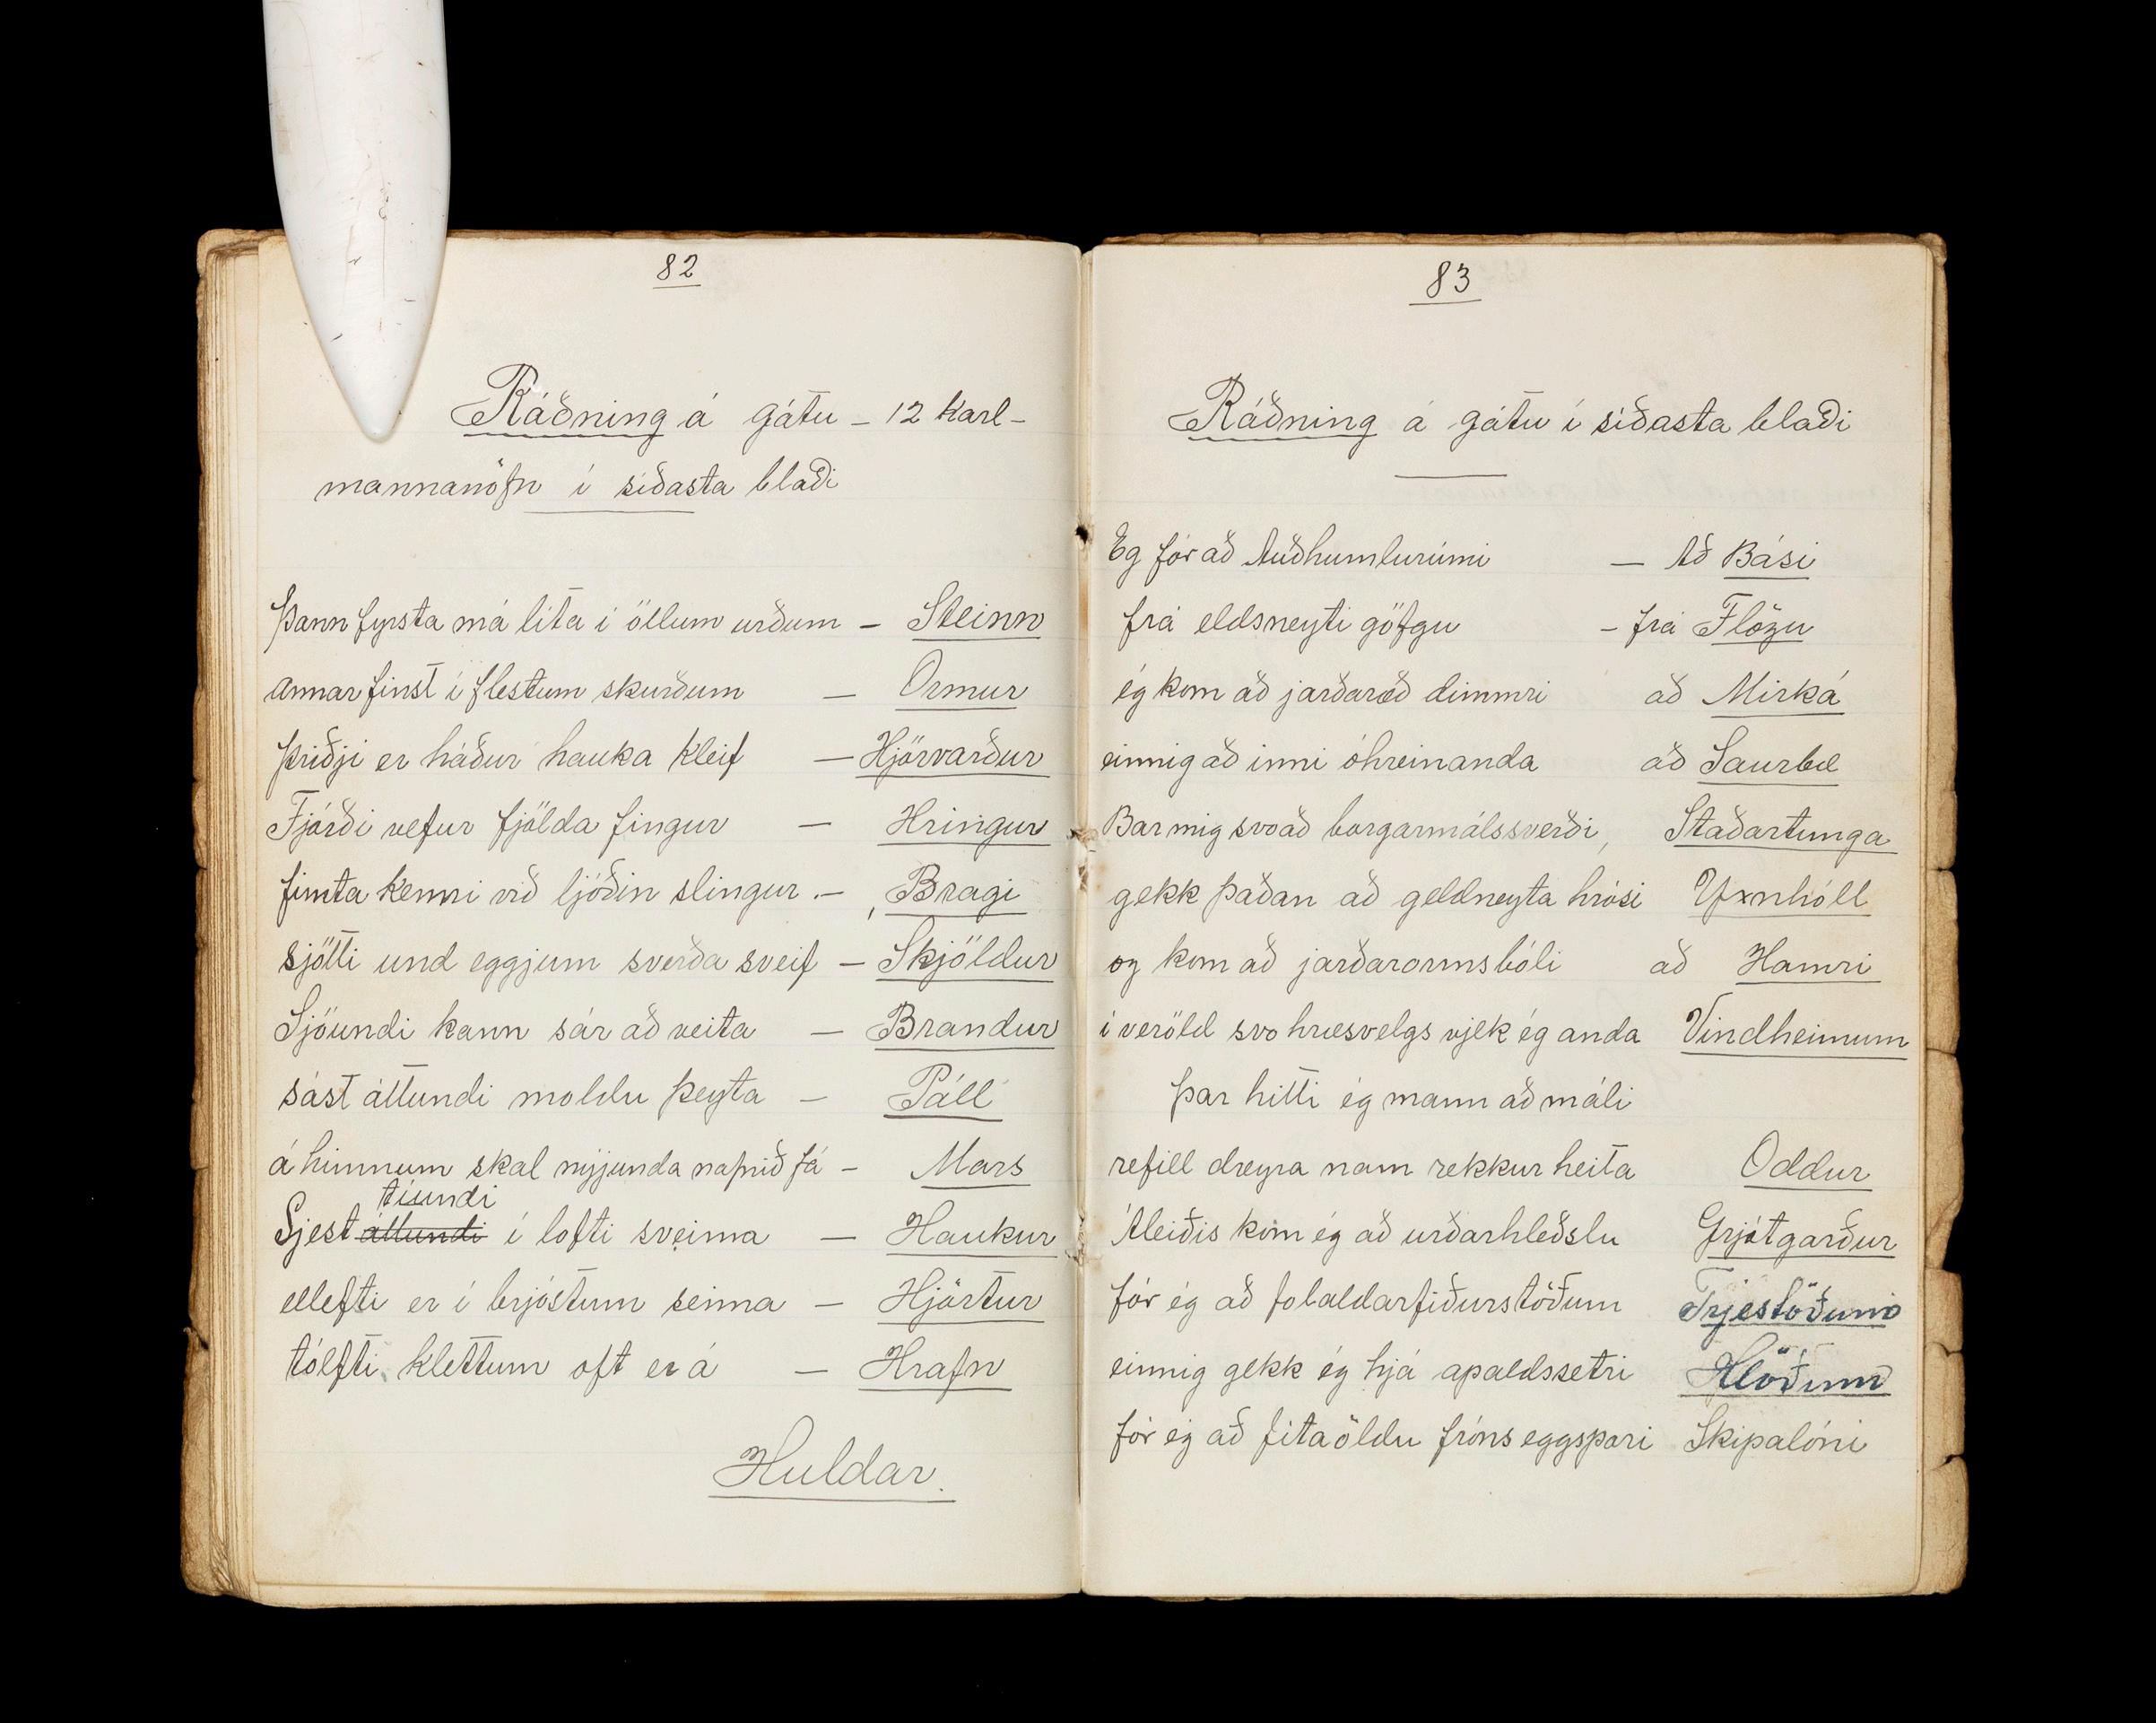 82
Ráðning á gátu – 12 karl-
mannanöfn í síðasta blaði
Þann fyrsta má líta í öllum urðum – Steinn
annar finst í flestum skurðum – Ormur
þriðji er háður hauka kleif – Hjörvarður
Fjórði vefur fjölda fingur – Hringur
fimta kenni við ljóðin slingur. – Bragi
sjötti und eggjum sverða sveif – Skjöldur
Sjöundi kann sár að veita – Brandur
sást áttundi moldu þeyta – Páll
á himnum skal nýjunda nafnið fá – Mars
tíundi
Sjest áttundi í lofti sveima – Haukur
ellefti er í brjóstum seima – Hjörtur
tólfti klettum oft er á – Hrafn
Huldar.
83
Ráðning á gátu í síðasta blaði
Eg fór að Auðhumlurúmi – Að Bási
frá eldsneyti göfgu – frá Flögu
ég kom að jarðaræð dimmri að Mirká
einnig að inni óhreinanda að Saurbæ
Bar mig svo að borgarmálssverði, Staðartunga
gekk þaðan að geldneyta hrósi Yxnhóll
og kom að jarðarormsbóli að Hamri
í veröld svo hræsvelgs vjek ég anda Vindheimum
Þar hitti ég mann að máli
refill dreyra nam rekkur heita Oddur
Áleiðis kom ég að urðarhleðslu Grjótgarður
fór ég að folaldarfiðurstöðum Trjestöðum
einnig gekk ég hjá apaldssetri Hlöðum
fór ég að fitaöldu fróns eggspari Skipalóni